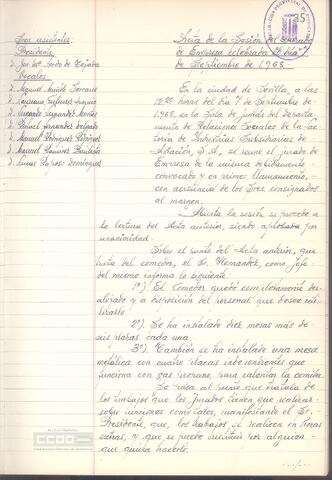 Sres. asistentes:
Presidente
Vocales:
D. Manuel
D. Eduardo Fernandez
D. Rafael Fernandez Delgado
D. Manuel
D. Manuel Bautista
D. Lucas Dominguez
Acta de la Sesión del Jurado
de Empresa celebrada el día 7
de Septiembre de 1968.
En la ciudad de Sevilla, a las
horas del día 7 de Septiembre de
1968, en Sala de Juntas del Departa-
mento de Relaciones Sociales de la Fac-
toría de Industrias Subsidiarias de
Aviación, S.A., se reune el Jurado de
Empresa de la misma debidamente
convocado y en primer llamamiento,
con asistencia de los Sres. consignados
al margen.
Abierta la sesión se procede a
la lectura del Acta anterior, siendo aprobada por
unanimidad.
Sobre el punto del Acta anterior, que
trata del comedor, el Sr. Hernandez, como Jefe
del mismo informa lo siguiente:
1º) El Comedor quedó completamente des-
alojado y a disposición del personal que desee uti-
lizarlo.
2º) Se ha instalado dos mesas más de
seis plazas cada una.
3º) También se ha instalado una mesa
metálica con cuatro placas independientes que
funciona con gas propano, para calentar la comida.
Se pasa al punto que trata de
los trabajos que los Jurados tienen que realizar
sobre funciones comerciales, manifestando el Sr.
Presidente, que, los trabajos se realicen en horas
extras, y que se puede sustituir por alguien
que quiera hacerlo.
CCOO